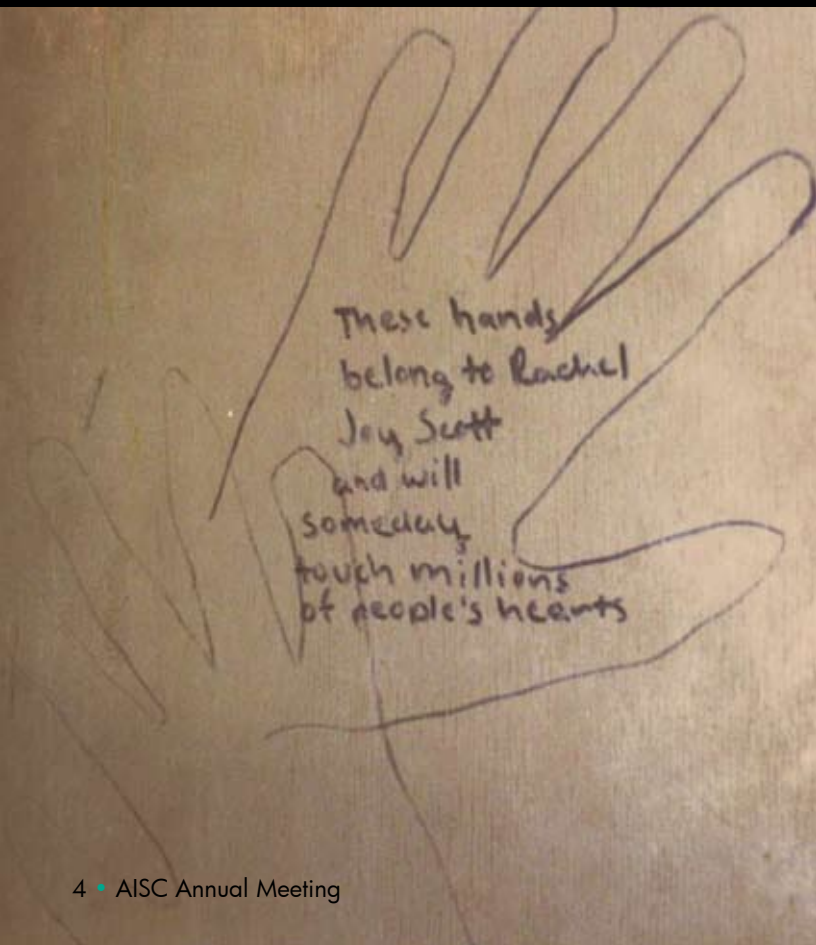 These hands
belong to Rachel
Joy Scott
and will
someday
touch millions
of people's hearts
4 • AISC Annual Meeting